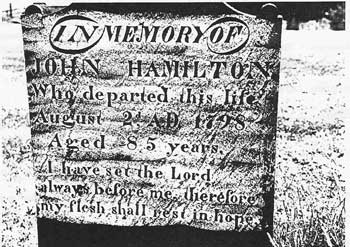 IN MEMORY OF
JOHN HAMILTON
Who departed this life
August 2d AD 1798
Aged 85 years.
I have set the Lord
always before me therefore
my flesh shall rest in hope